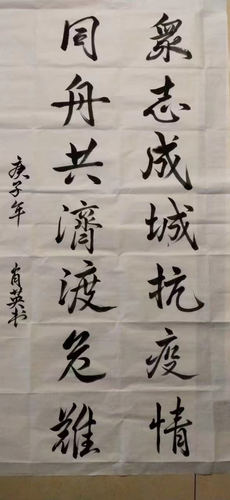 眾志成城抗疫情
同舟共濟渡危難
庚子年 肖英书